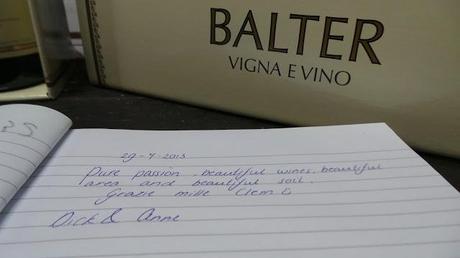 BALTER
VIGNA E VINO
29-7-2013
Pure passion, beautiful wines, beautiful
area and beautiful soil.
Grazie mille
Dick & Anne